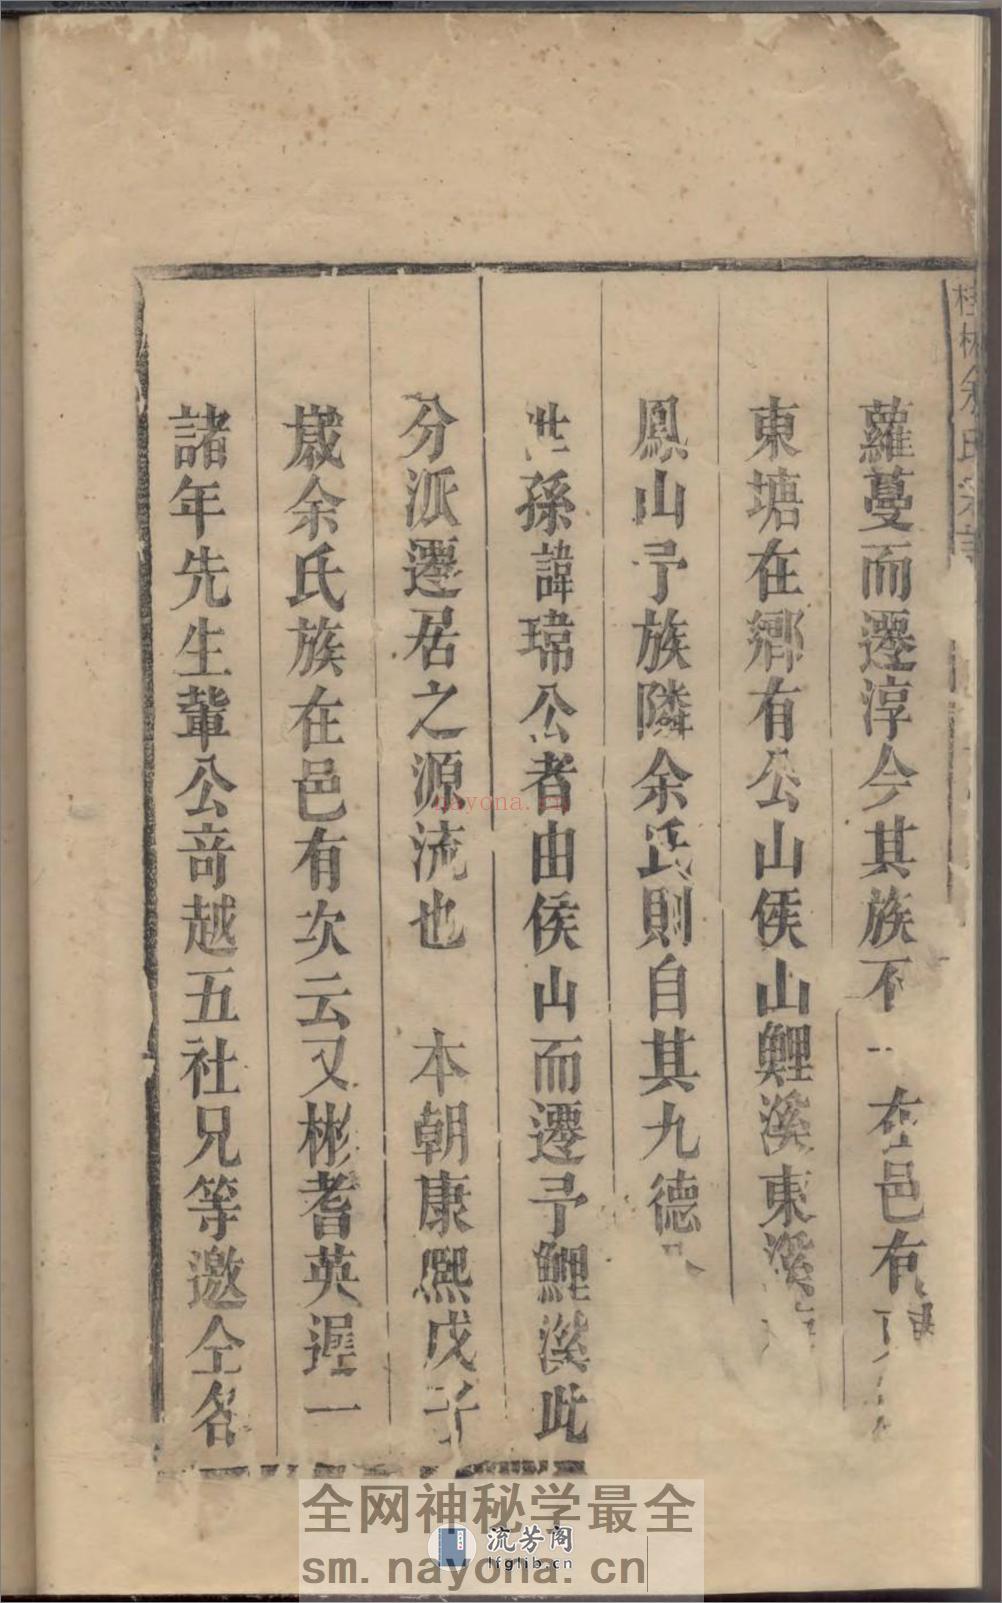 桂林余氏宗譜
蘿蔓而遷淳今其族不一在邑有東
東塘在鄉有公山侯山鯉溪東溪
鳳山予族隣余氏則自其九德
世孫諱瑋公者由侯山而遷予鯉溪此
分派遷居之源流也 本朝康熙戊子
歲余氏族在邑有次云又彬耆英遲一
諸年先生輩公啇越五社兄等邀仝各
nayona.cn
全网神秘学最全
流芳阁
lfglib.cn
sm.nayona.cn